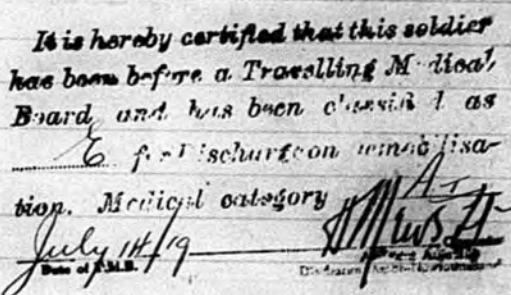 It is hereby certified that this soldier
has been before a Travelling Medical
Board and has been classified as
E for Discharge on demobilisa-
tion. Medical category A I
July 14/19
Date of T.M.B.